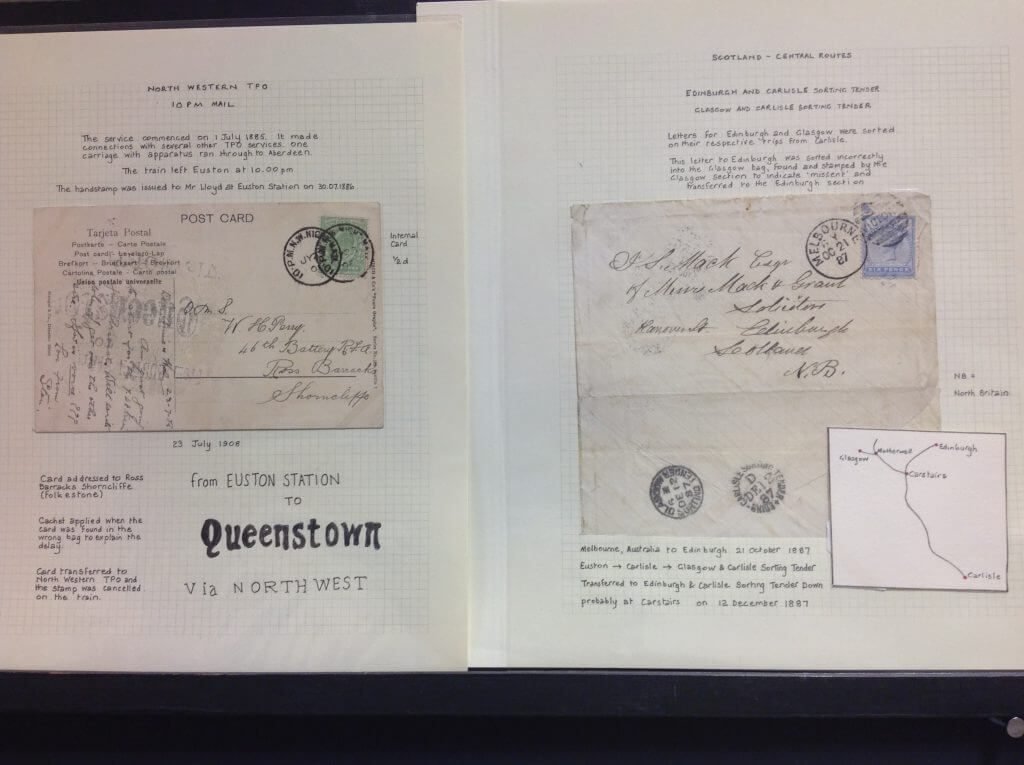 NORTH WESTERN TPO
10 PM MAIL
The service commenced on 1 July 1885. It made
connections with several other TPO services. One
carriage with apparatus ran through to Aberdeen.
The train left Euston at 10.00 pm
The handstamp was issued to Mr Lloyd at Euston Station on 30.07.1886
POST CARD
Tarjeta Postal
Postkarte - Carte Postale
Post card - Levelező-Lap
Brefkort - Briefkaart - Brevkort
Cartolina Postale - Carte postal
Union postale universelle
10.P.M.N.W.
Internal
Card
½d
W H Perry.
46th Battery R.F.A.
Ross Barracks
Shorncliffe
23 July 1908
Card addressed to Ross
Barracks Shorncliffe
(folkestone)
Cachet applied when the
card was found in the
wrong bag to explain the
delay.
Card transferred to
North Western TPO and
the stamp was cancelled
on the train.
from EUSTON STATION
TO
Queenstown
Via NORTH WEST
SCOTLAND - CENTRAL ROUTES
EDINBURGH AND CARLISLE SORTING TENDER
GLASGOW AND CARLISLE SORTING TENDER
Letters for Edinburgh and Glasgow were sorted
on their respective trips from Carlisle.
This letter to Edinburgh was sorted incorrectly
into the Glasgow bag, found and stamped by the
Glasgow section to indicate 'missent' and
transferred to the Edinburgh section
MELBOURNE
OC 21
87
VICTORIA
SIX PENCE
J. S. Mack Esqr
of Messrs Mack & Grant
Solicitors
Hanover St Edinburgh
Scotland
N.B.
NB =
North Britain
CARLISLE SORTING TENDER
D
87
Glasgow
Motherwell
Edinburgh
Carstairs
Carlisle
Melbourne, Australia to Edinburgh 21 October 1887
Euston → Carlisle → Glasgow & Carlisle Sorting Tender
Transferred to Edinburgh & Carlisle Sorting Tender Down
probably at Carstairs on 12 December 1887